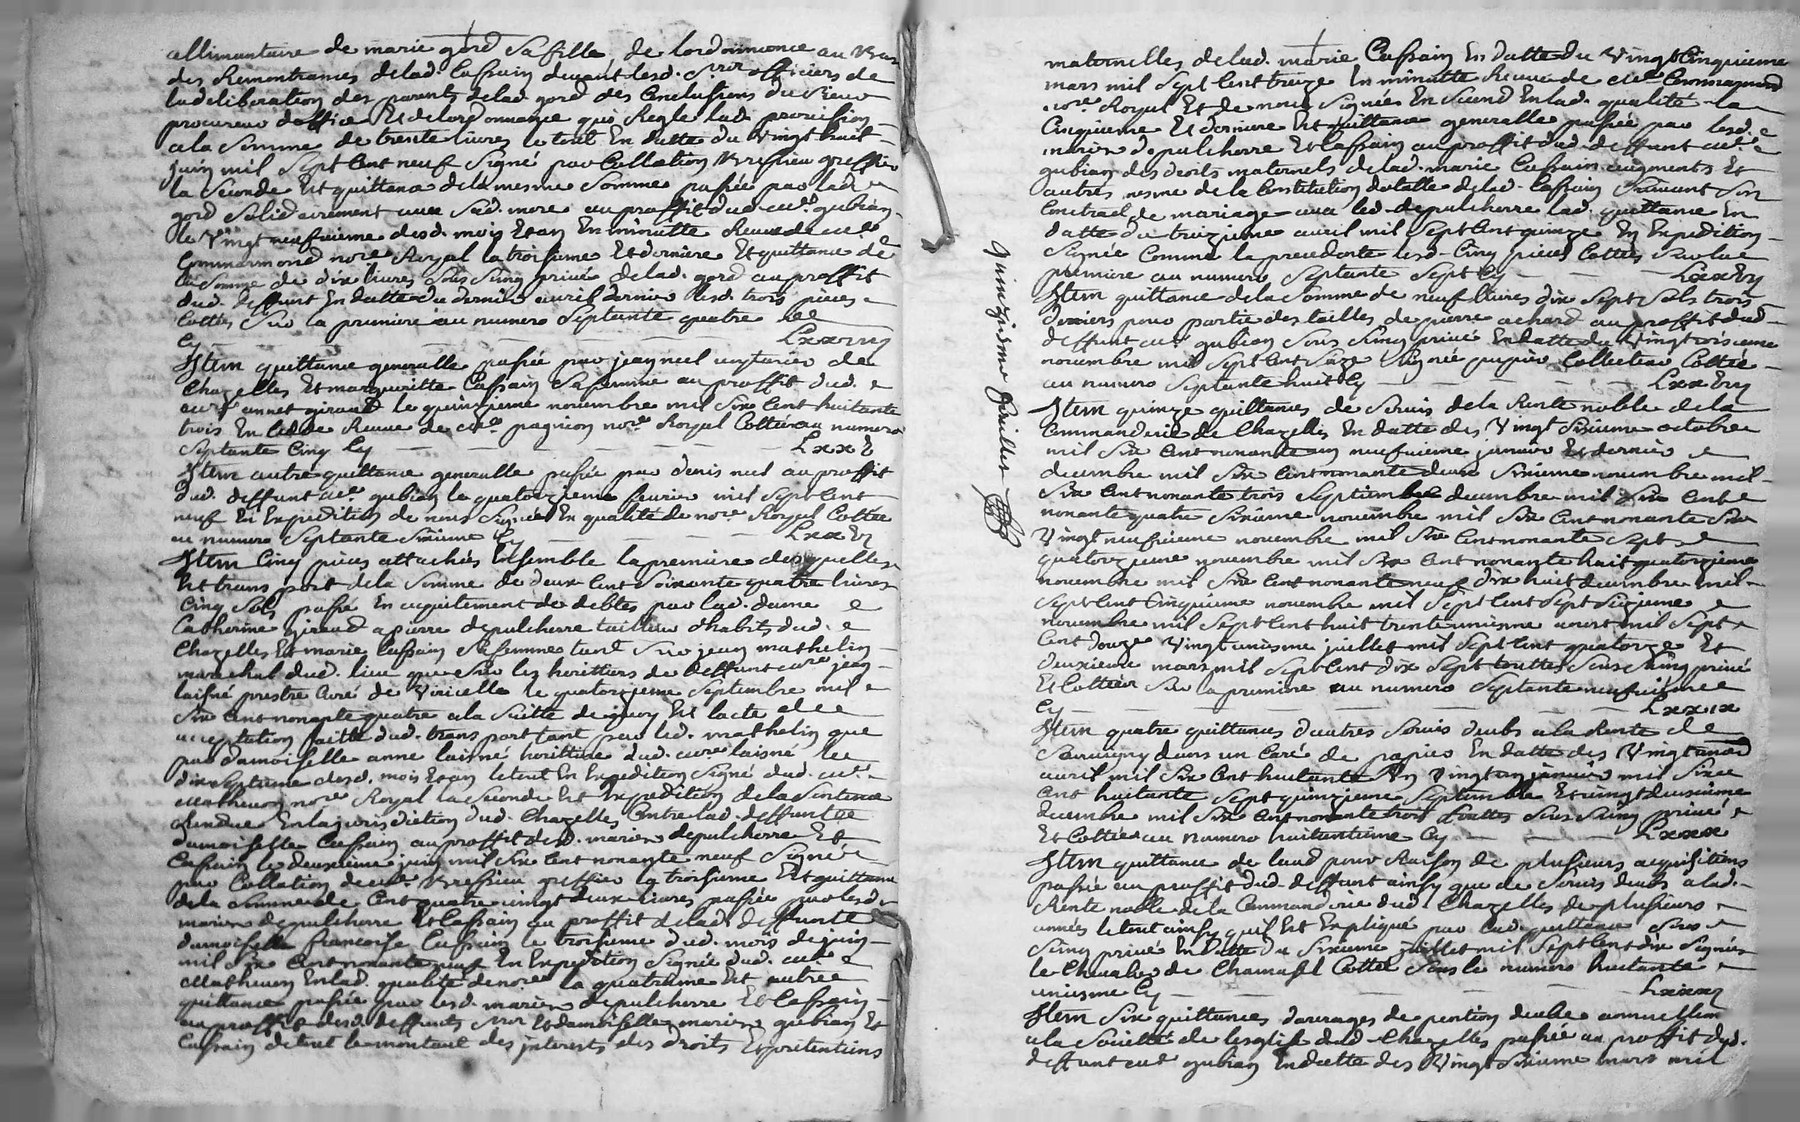 allimantaire de marie gord sa fille de lordonnance au bas
des Remontrances delad. Cassain devant lesd. srs officiers de
la deliberation des parents delad. gord des Conclusions du sieur
procureur doffice Et delordonnance qui Regle lad. provision
a la somme de trente livres le tout En datte du vingt huit
juin mil sept Cent neuf signé par Collation Bressieu greffier
la seconde Est quittance dela mesme somme passée par lad.
gord solidairement avec sad. mere au proffit dud. me gubian
le vingt neufvieme desd. mois Et an En minutte Receue de me
Commarmond nore Royal la troisieme Et derniere Est quittance de
la somme de dix livres sous seing privé delad. gord au proffit
dud. deffunt En datte du dernier avril dernier lesd. trois pieces
Cottées sur la premiere au numero septante quatre
Cy Lxxiiij
Item quittance generalle passée par jean neel voyturier de
Chazelles Et margueritte Cassain sa femme au proffit dud.
annet giraud le quinzieme novembre mil six Cent huitante
trois En Receue de me pagnion nore Royal Cottée au numero
septante Cinq Cy Lxxv
Item autre quittance generalle passée par denis neel au proffit
dud. deffunt me gubian le quatorzieme fevrier mil sept Cent
neuf En Expedition de nous signée En qualité de nore Royal Cottée
au numero septante sixieme Cy Lxxvj
Item Cinq pieces attachées Ensemble la premiere desquelles
Est transport dela somme de deux Cent soixante quatre livres
Cinq sols passé En acquitement de debtes par lad. dame
Catherine giraud a pierre depulcherre tailleur dhabits dud.
Chazelles Et marie Cassain sa femme tant sur jean mathelin
marechal dud. lieu que sur les heoittiers de deffunt me jean
laisné prestre Curé de Viricelle le quatorzieme septembre mil
six Cent nonante quatre a la suitte dequoy Est lacte
acceptation faitte dud. transport tant par led. mathelin que
par damoiselle anne laisné heoittiere dud. Curé laisné le
dix septieme desd. mois Et an le tout En Expedition signé dud. me
Matheuon nore Royal la seconde Est Expedition de la sentence
Rendue En la jurisdiction dud. Chazelles Contre lad. deffunte
damoiselle Cassain au proffit desd. mariés depulcherre Et
Cassain le deuxieme juin mil six Cent nonante neuf signée
par Collation de me Bressieu greffier la troisieme Est quittance
dela somme de Cent quatre vingt deux livres passée par lesd.
mariés depulcherre Et Cassain au proffit delad. deffunte
damoiselle francoise Cassain le troisieme dud. mois de juin
mil six Cent nonante neuf En Expedition signée dud. me
Matheuon En lad. qualité de nore la quatrieme Est autre
quittance passée par lesd. mariés depulcherre Et Cassain
au proffit desd. deffunts sieur Et damoiselle mariés gubian Et
Cassain de tout le montant des interests des droits Et pretentions
quinzieme feuillet
maternelles delad. marie Cassain En datte du vingt Cinquieme
mars mil sept Cent treize En minutte Receue de me Commarmond
nore Royal Et de nous signée En second En lad. qualité la
Cinquieme Et derniere Est quittance generalle passée par lesd.
mariés depulcherre Et Cassain au proffit dud. deffunt me
gubian des droits maternels delad. marie Cassain augments Et
autres mesme de la Constitution dotalle delad. Cassain suivant son
Contract de mariage avec led. depulcherre lad. quittance En
datte du treizieme avril mil sept Cent quinze En Expedition
signée Comme la precedente lesd. Cinq pieces Cottées sur la
premiere au numero septante sept Cy Lxxvij
Item quittance dela somme de neuf livres dix sept sols trois
deniers pour partie des tailles de pierre achard au proffit dud.
deffunt me gubian sous seing privé En datte du vingt troisieme
novembre mil sept Cent seize signée Collecteur Cottée
au numero septante huit Cy Lxxviij
Item quinze quittances de servis dela Rente noble dela
Commanderie de Chazelles En datte des vingt sixieme octobre
mil six Cent nonante un neufvieme janvier Et dernier
decembre mil six Cent nonante deux sixieme novembre mil
six Cent nonante trois septieme decembre mil six Cent
nonante quatre sixieme novembre mil six Cent nonante six
vingt neufvieme novembre mil six Cent nonante sept
quatorzieme novembre mil six Cent nonante huit quatorzieme
novembre mil six Cent nonante neuf dix huit decembre mil
sept Cent Cinquieme novembre mil sept Cent sept sixieme
novembre mil sept Cent huit trente unieme aoust mil sept
Cent douze vingt unieme juillet mil sept Cent quatorze Et
deuxieme mars mil sept Cent dix sept touttes sous seing privé
Et Cottées sur la premiere au numero septante neufvieme
Cy Lxxix
Item quatre quittances dautres servis deubs a la Rente de
Sauvigny dans un Caré de papier En datte des vingt
avril mil six Cent huitante un vingt un janvier mil six
Cent huitante sept quinzieme septembre Et vingt deuxieme
decembre mil six Cent nonante trois touttes sous seing privé
Et Cottées au numero huitantieme Cy Lxxx
Item quittance de laud pour Raison de plusieurs acquisitions
passée au proffit dud. deffunt ainsy que de servis deubs a lad.
Rente noble dela Commanderie dud. Chazelles de plusieurs
années le tout ainsy quil Est Expliqué par lad. quittance sous
seing privé En datte du sixieme juillet mil sept Cent dix signée
le Chevalier de Cottée sous le numero huitante
unieme Cy Lxxxj
Item six quittances darrerages de pention deube annuellement
a la société de lesglise dud. Chazelles passée au proffit dud.
deffunt me gubian En datte des vingt sixieme mars mil